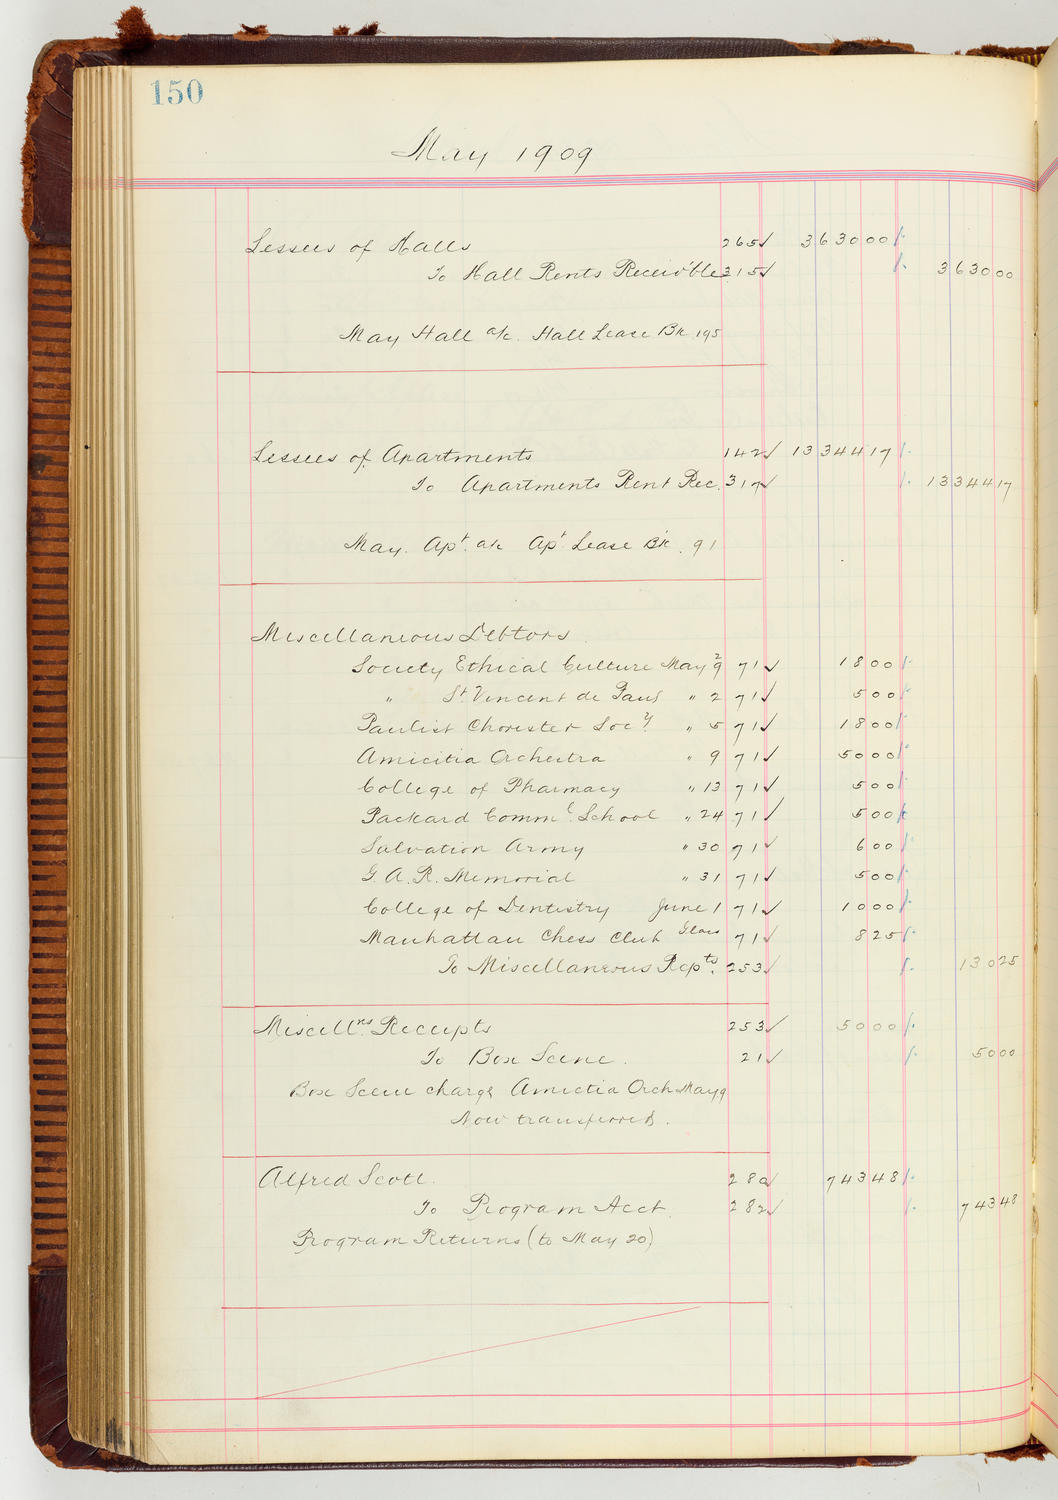 150
May 1909
Lessees of Halls 265✓ 363000
To Hall Rents Receiv'ble 315✓ 363000
May Hall a/c. Hall Lease Bk 195
Lessees of Apartments 142✓ 1334417
To Apartments Rent Rec. 317✓ 1334417
May. Apt. a/c Apt Lease Bk. 91
Miscellaneous Debtors
Society Ethical Culture May 2 9 71✓ 1800
" St Vincent de Paul " 2 71✓ 500
Paulist Chorister Socy. " 5 71✓ 1800
Amicitia Orchestra " 9 71✓ 5000
College of Pharmacy " 13 71✓ 500
Packard Comml. School " 24 71✓ 500
Salvation Army " 30 71✓ 600
G. A. R. Memorial " 31 71✓ 500
College of Dentistry June 1 71✓ 1000
Manhattan Chess Club Glass 71✓ 825
To Miscellaneous Rcpts. 253✓ 13025
Miscellns Receipts 253✓ 5000
To Box Scene. 21✓ 5000
Box Scene charge Amicitia Orch May 9
Now transferred.
Alfred Scott. 280✓ 74348
To Program Acct 282✓ 74348
Program Returns (to May 20)